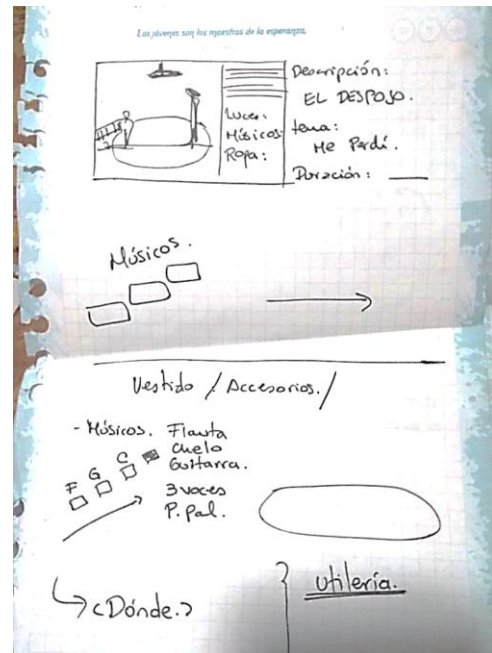 Los jóvenes son los maestros de la esperanza.
Descripción:
EL DESPOJO.
Luces:
Músicos:
Ropa:
tema:
Me Perdí.
Duración:
Músicos.
Vestido / Accesorios. /
- Músicos. Flauta
Chelo
Guitarra.
F G C
3 voces
P. Pal.
¿Dónde.?
Utilería.